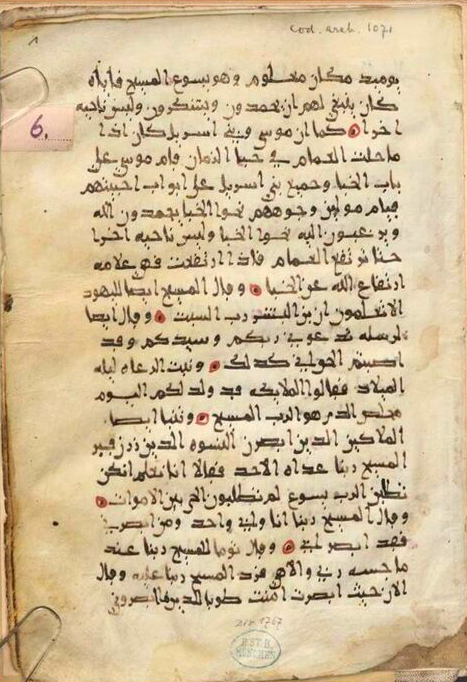 Cod. arab. 1071
1
6.
يوميد مكان معلوم وهو يسوع المسيح فاياه
كان ينبغي لهم ان يحمدون ويشكرون وليس ناحيه
اخرا كما ان موسى وبني اسريل كان اذا
ما حلت الغمام في خبا الزمان قام موسى على
باب الخبا وجميع بني اسريل على ابواب اخبيتهم
قيام مولين وجوههم نحو الخبا يحمدون الله
ويرغبون اليه نحو الخبا وليس ناحيه اخرا
حتا ترتفع الغمام فاذا ارتفعت فهي علامه
ارتفاع الله عن الخبا وقال المسيح ايضا لليهود
الا تعلمون ان بن البشر رب السبت وقال ايضا
لرسله تدعوني ربكم وسيدكم وقد
اصبتم القول كذلك وثبت الرعاه ليله
الميلاد فقالوا الملايكه قد ولد لكم اليوم
مخلص الذي هو الرب المسيح وثبتا ايضا
الملاكين الذين ابصرن النسوه الذين زرن قبر
المسيح ربنا غداه الاحد فقالا انا نعلم انكن
تطلبن الرب يسوع لم تطلبون الحي بين الاموات
وقال المسيح ربنا انا وابي واحد ومن ابصرني
فقد ابصر ابي وقال توما للمسيح ربنا عند
ما جسه ربي والاهي فرد المسيح ربنا عليه وقال
الان حيث ابصرت امنت طوبا للذين لم يبصروني
B.ST.B.
MÜNCHEN